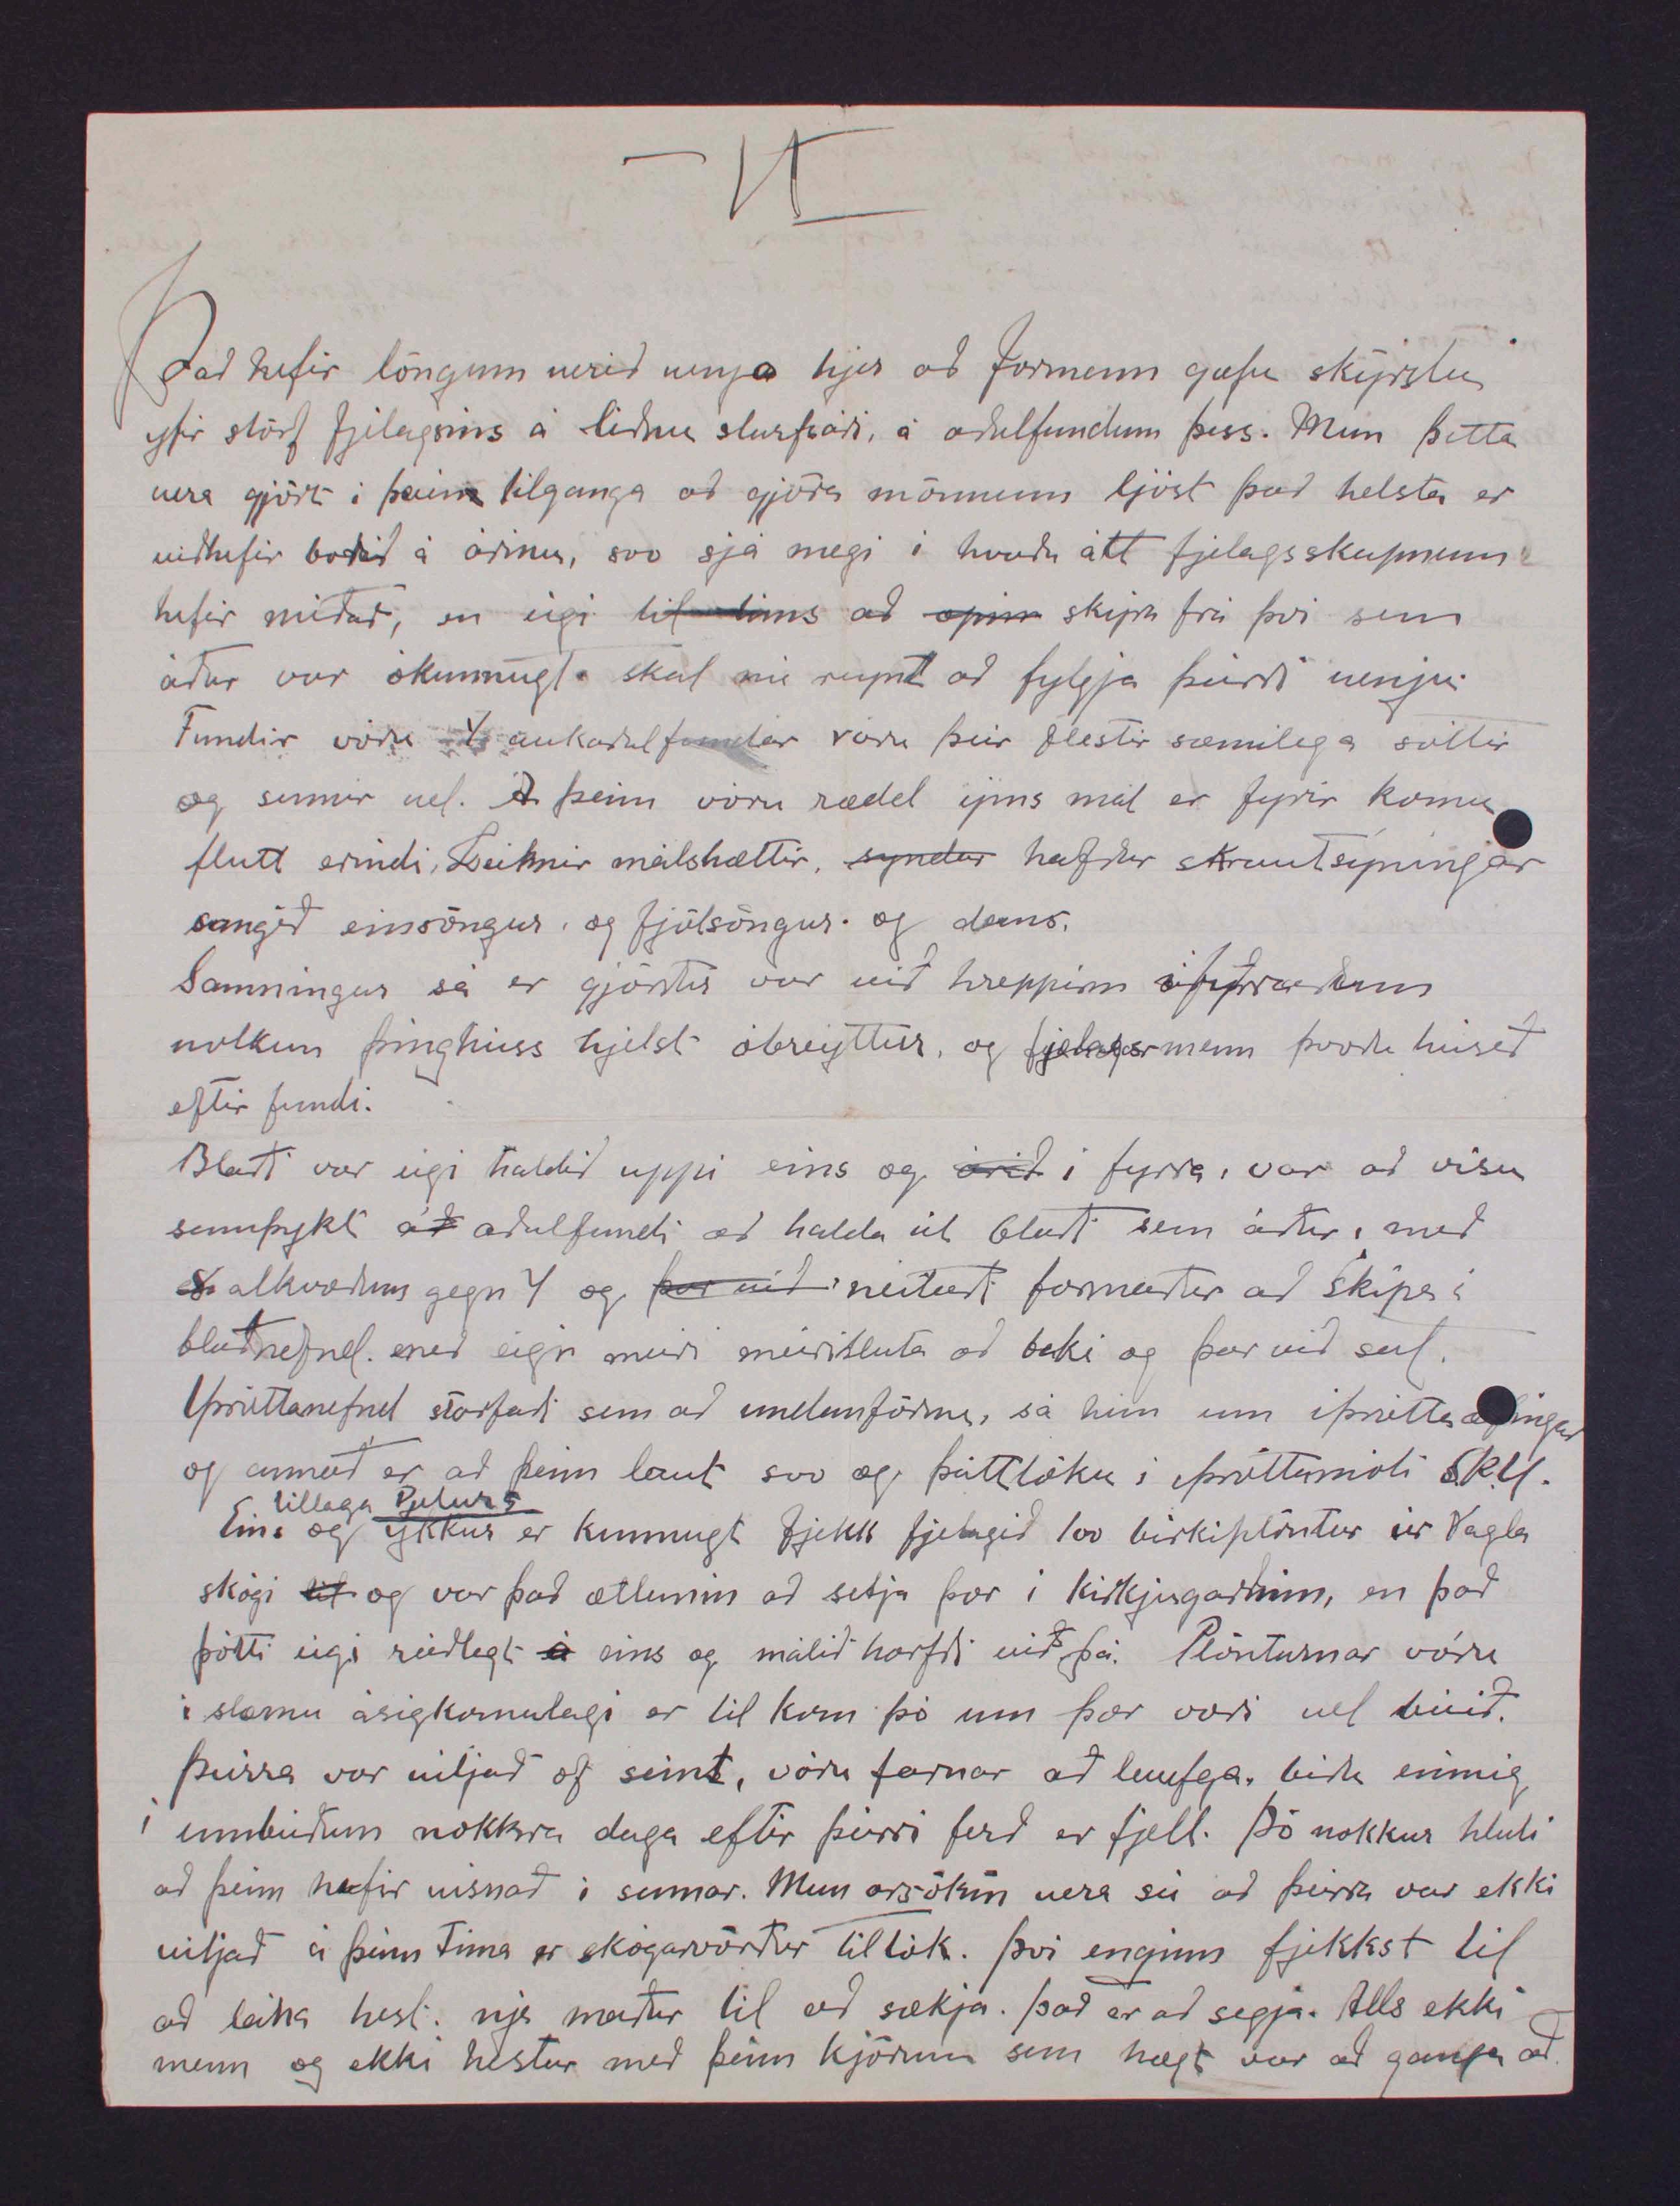 Það hefir löngum verið venja hjer að formenn gæfu skýrslu
yfir störf fjelagsins á liðnu starfsári, á aðalfundum þess. Mun þetta
vera gjört í þeim tilganga að gjöra mönnum ljóst það helsta er
viðhefir borið á árinu, svo sjá megi í hvaða átt fjelagsskapnum
hefir miðað, en eigi til að skýra frá því sem
áður var ókunnugt. skal nú reynt að fylgja þeirri venju.
Fundir vóru 4 aukaðalfundar vóru þeir flestir sæmilega sóttir
og sumir vel. Á þeim vóru rædd ýms mál er fyrir komu
flutt erindi, Leiknir málshættir, syndar hafðar skrautsýningar
sungið einsöngur, og fjölsöngur. og dans.
Samningur sá er gjörður var við hreppinn
notkun þinghúss hjelst óbreyttur, og fjelagsmenn þvoðu húsið
eftir fundi.
Blaði var eigi haldið uppi eins og árið í fyrra, var að vísu
samþykt að aðalfundi að halda út blaði sem áður, með
8 atkvæðum gegn 4 og þar við neitaði formaður að skipa í
blaðnefnd. með eigi meiri meirihluta að baki og þar við sat.
Íþróttanefnd starfaði sem að undanförnu, sá hún um íþróttaæfingar
og annað er að þeim laut svo og þátttöku í íþróttamóti
tillaga Pjeturs
Eins og ykkur er kunnugt fjekk fjelagið 100 birkiplöntur úr Vagla
skógi til og var það ætlunin að setja þær í kirkjugarðinn, en það
þótti eigi ráðlegt á eins og málið horfði við þá. Plönturnar vóru
í slæmu ásigkomulagi er til kom þó um þær væri vel búið.
Þeirra var vitjað of seint, vóru farnar að laufga, biðu einnig
í umbúðum nokkra daga eftir þeirri ferð er fjell. Þó nokkur hluti
að þeim hefir visnað í sumar. Mun orsökin vera sú að þeirra var ekki
vitjað á þeim tíma er skógarvörður tiltók. Því enginn fjekkst til
að lána hest. nje maður til að sækja. Það er að segja. Alls ekki
menn og ekki hestur með þeim kjörum sem hægt var að ganga að.